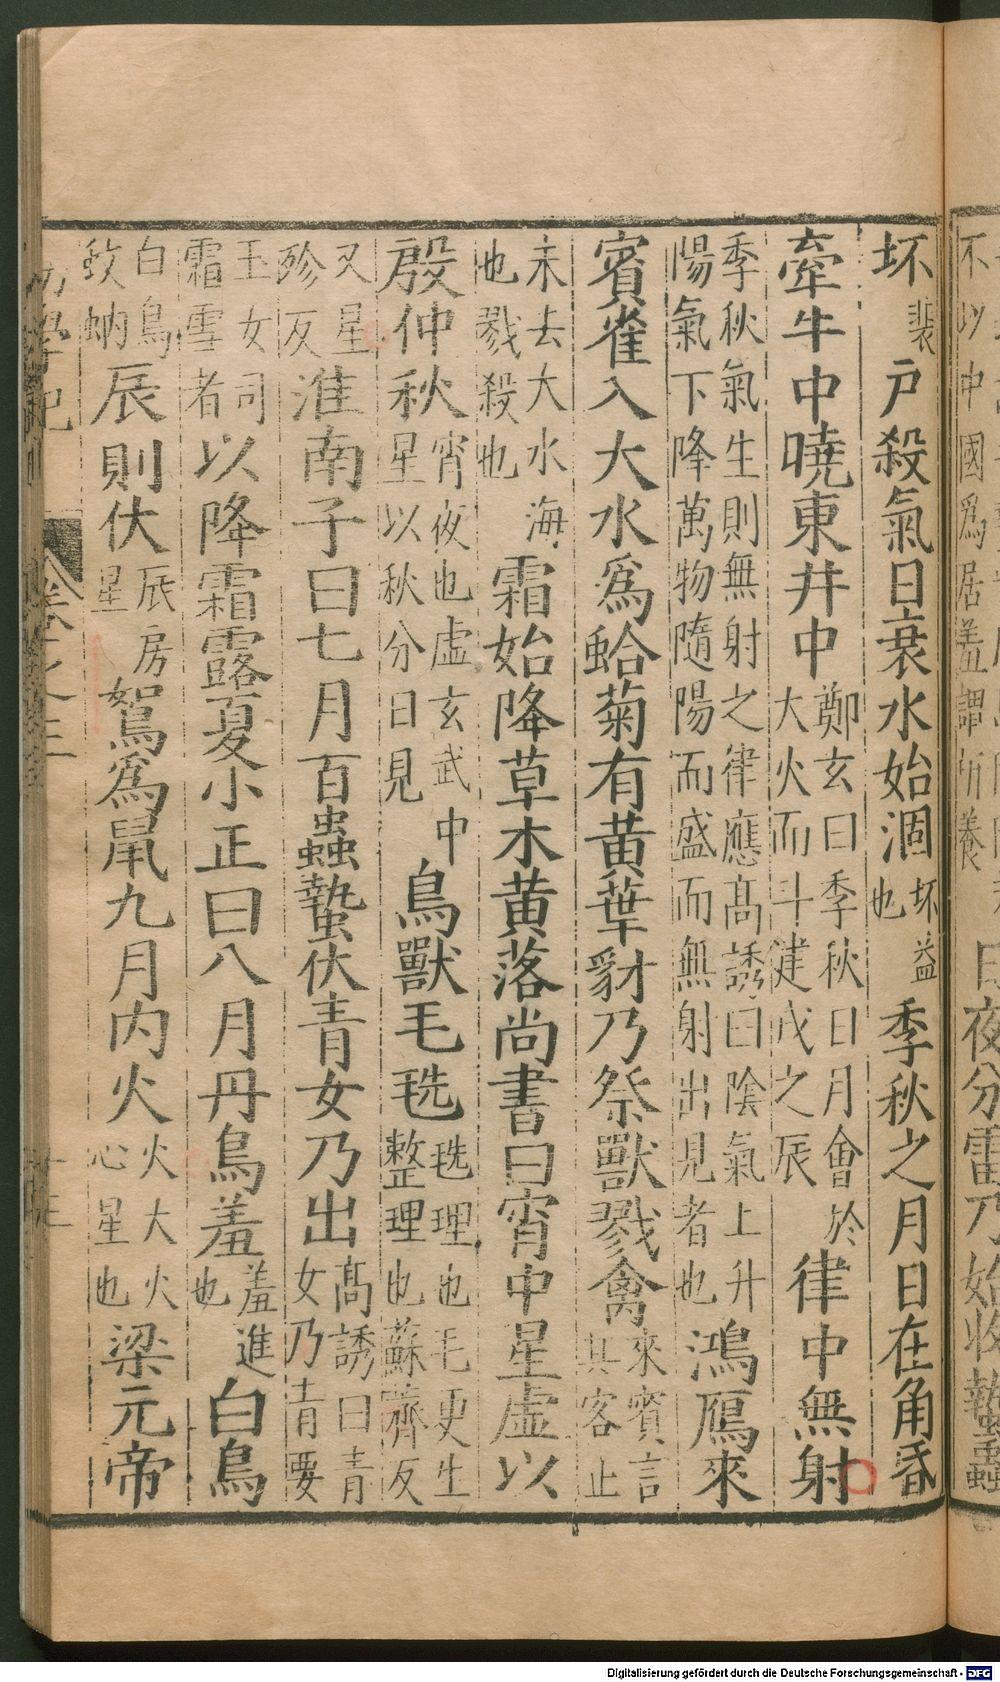 不以中國爲居羞謂所養
日夜分雷乃始收蟄蟲
坏裴戶殺氣日衰水始涸坏益也季秋之月日在角昏
牽牛中曉東井中鄭玄曰季秋日月會於大火而斗建戌之辰律中無射
季秋氣生則無射之律應髙誘曰陰氣上升陽氣下降萬物隨陽而盛而無射出見者也鴻鴈來
賓雀入大水爲蛤菊有黃葉豺乃祭獸戮禽來賓言其客止
未去大水海也戮殺也霜始降草木黃落尚書曰宵中星虛以
殷仲秋宵夜也虛玄武中星以秋分日見鳥獸毛毨毨理也毛更生整理也蘇齊反
又星殄反淮南子曰七月百蟲蟄伏青女乃出髙誘曰青女乃青要
玉女司霜雪者以降霜露夏小正曰八月丹鳥羞羞進也白鳥
白鳥蚊蚋辰則伏辰房星鴽爲鼠九月內火火大火心星也梁元帝
卷之三
Digitalisierung gefördert durch die Deutsche Forschungsgemeinschaft - DFG